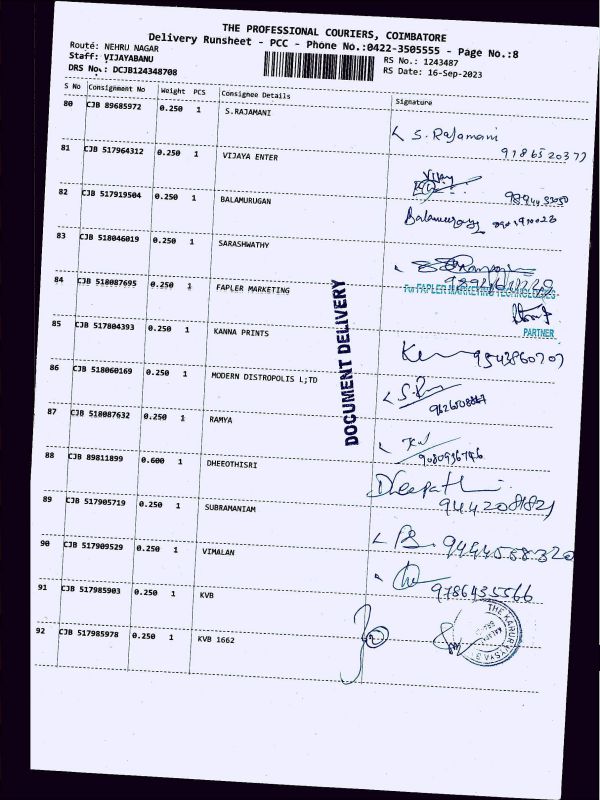 THE PROFESSIONAL COURIERS, COIMBATORE
Delivery Runsheet - PCC - Phone No.:0422-3505555 - Page No.:8
Route: NEHRU NAGAR
Staff: VIJAYABANU
DRS No.: DCJB124348708
RS No.: 1243487
RS Date: 16-Sep-2023
S No Consignment No Weight PCS Consignee Details Signature
80 CJB 89685972 0.250 1 S.RAJAMANI S. Rajamani
81 CJB 517964312 0.250 1 VIJAYA ENTER Vijay
82 CJB 517919504 0.250 1 BALAMURUGAN
83 CJB 518046019 0.250 1 SARASHWATHY
84 CJB 518087695 0.250 1 FAPLER MARKETING For FAPLER MARKETING TECHNOLOGIES
PARTNER
85 CJB 517804393 0.250 1 KANNA PRINTS 9543860707
86 CJB 518060169 0.250 1 MODERN DISTROPOLIS L;TD
87 CJB 518087632 0.250 1 RAMYA 9080936746
88 CJB 89811899 0.600 1 DHEEOTHISRI
89 CJB 517905719 0.250 1 SUBRAMANIAM 9442081821
90 CJB 517909529 0.250 1 VIMALAN 9444058320
91 CJB 517985903 0.250 1 KVB 9786435566
92 CJB 517985978 0.250 1 KVB 1662
THE KARUR VYSYA
DOCUMENT DELIVERY